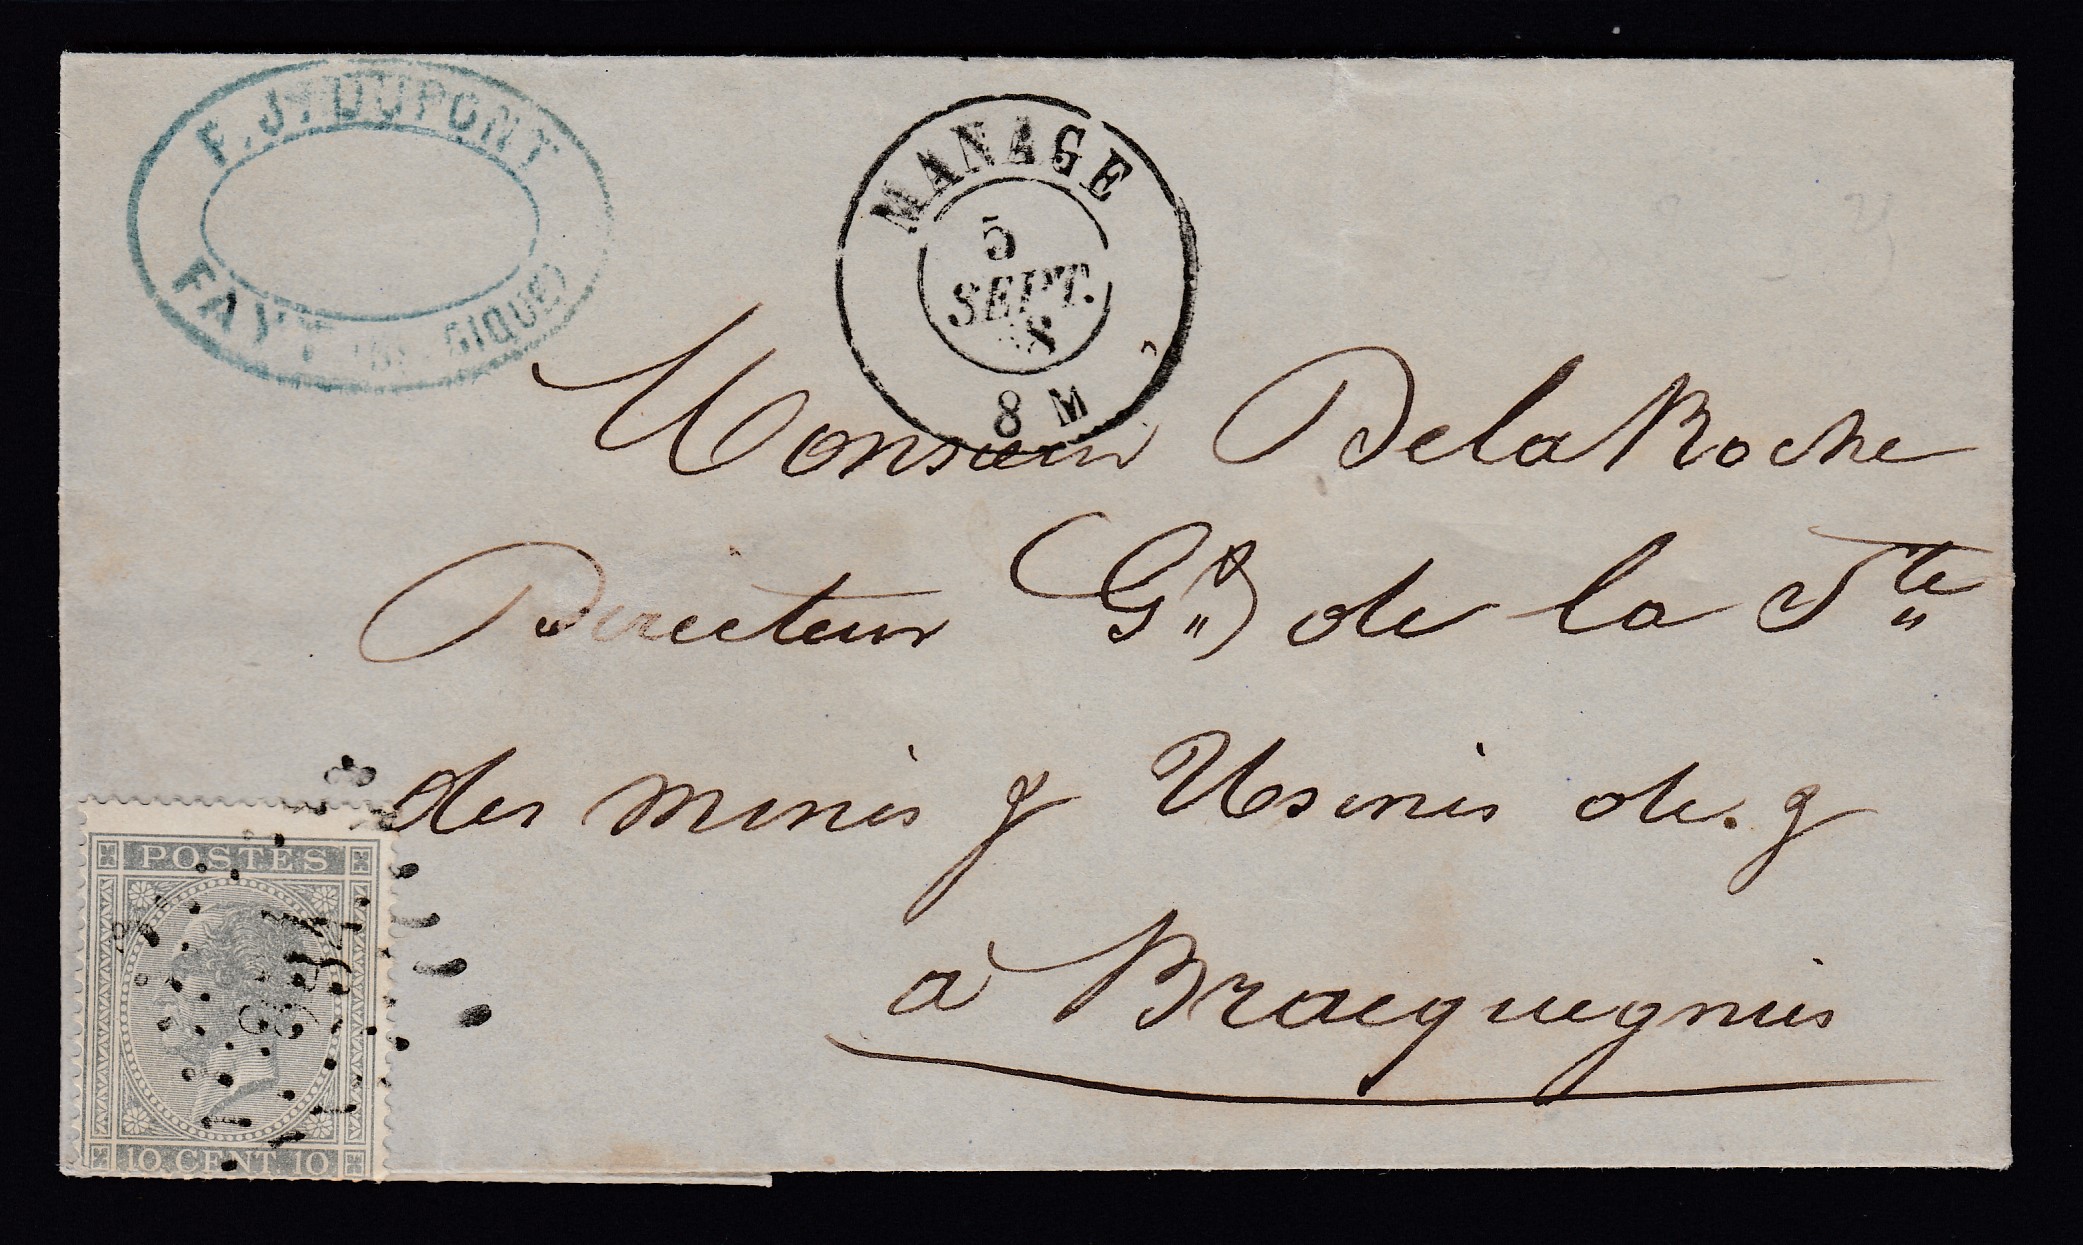 F. J. DUPONT
FAYT (BELGIQUE)
MANAGE
5
SEPT.
8 M
Monsieur DelaRoche
Directeur G.al de la Ste
des mines & Usines de. g
à Bracquegnies
POSTES
10 CENT. 10